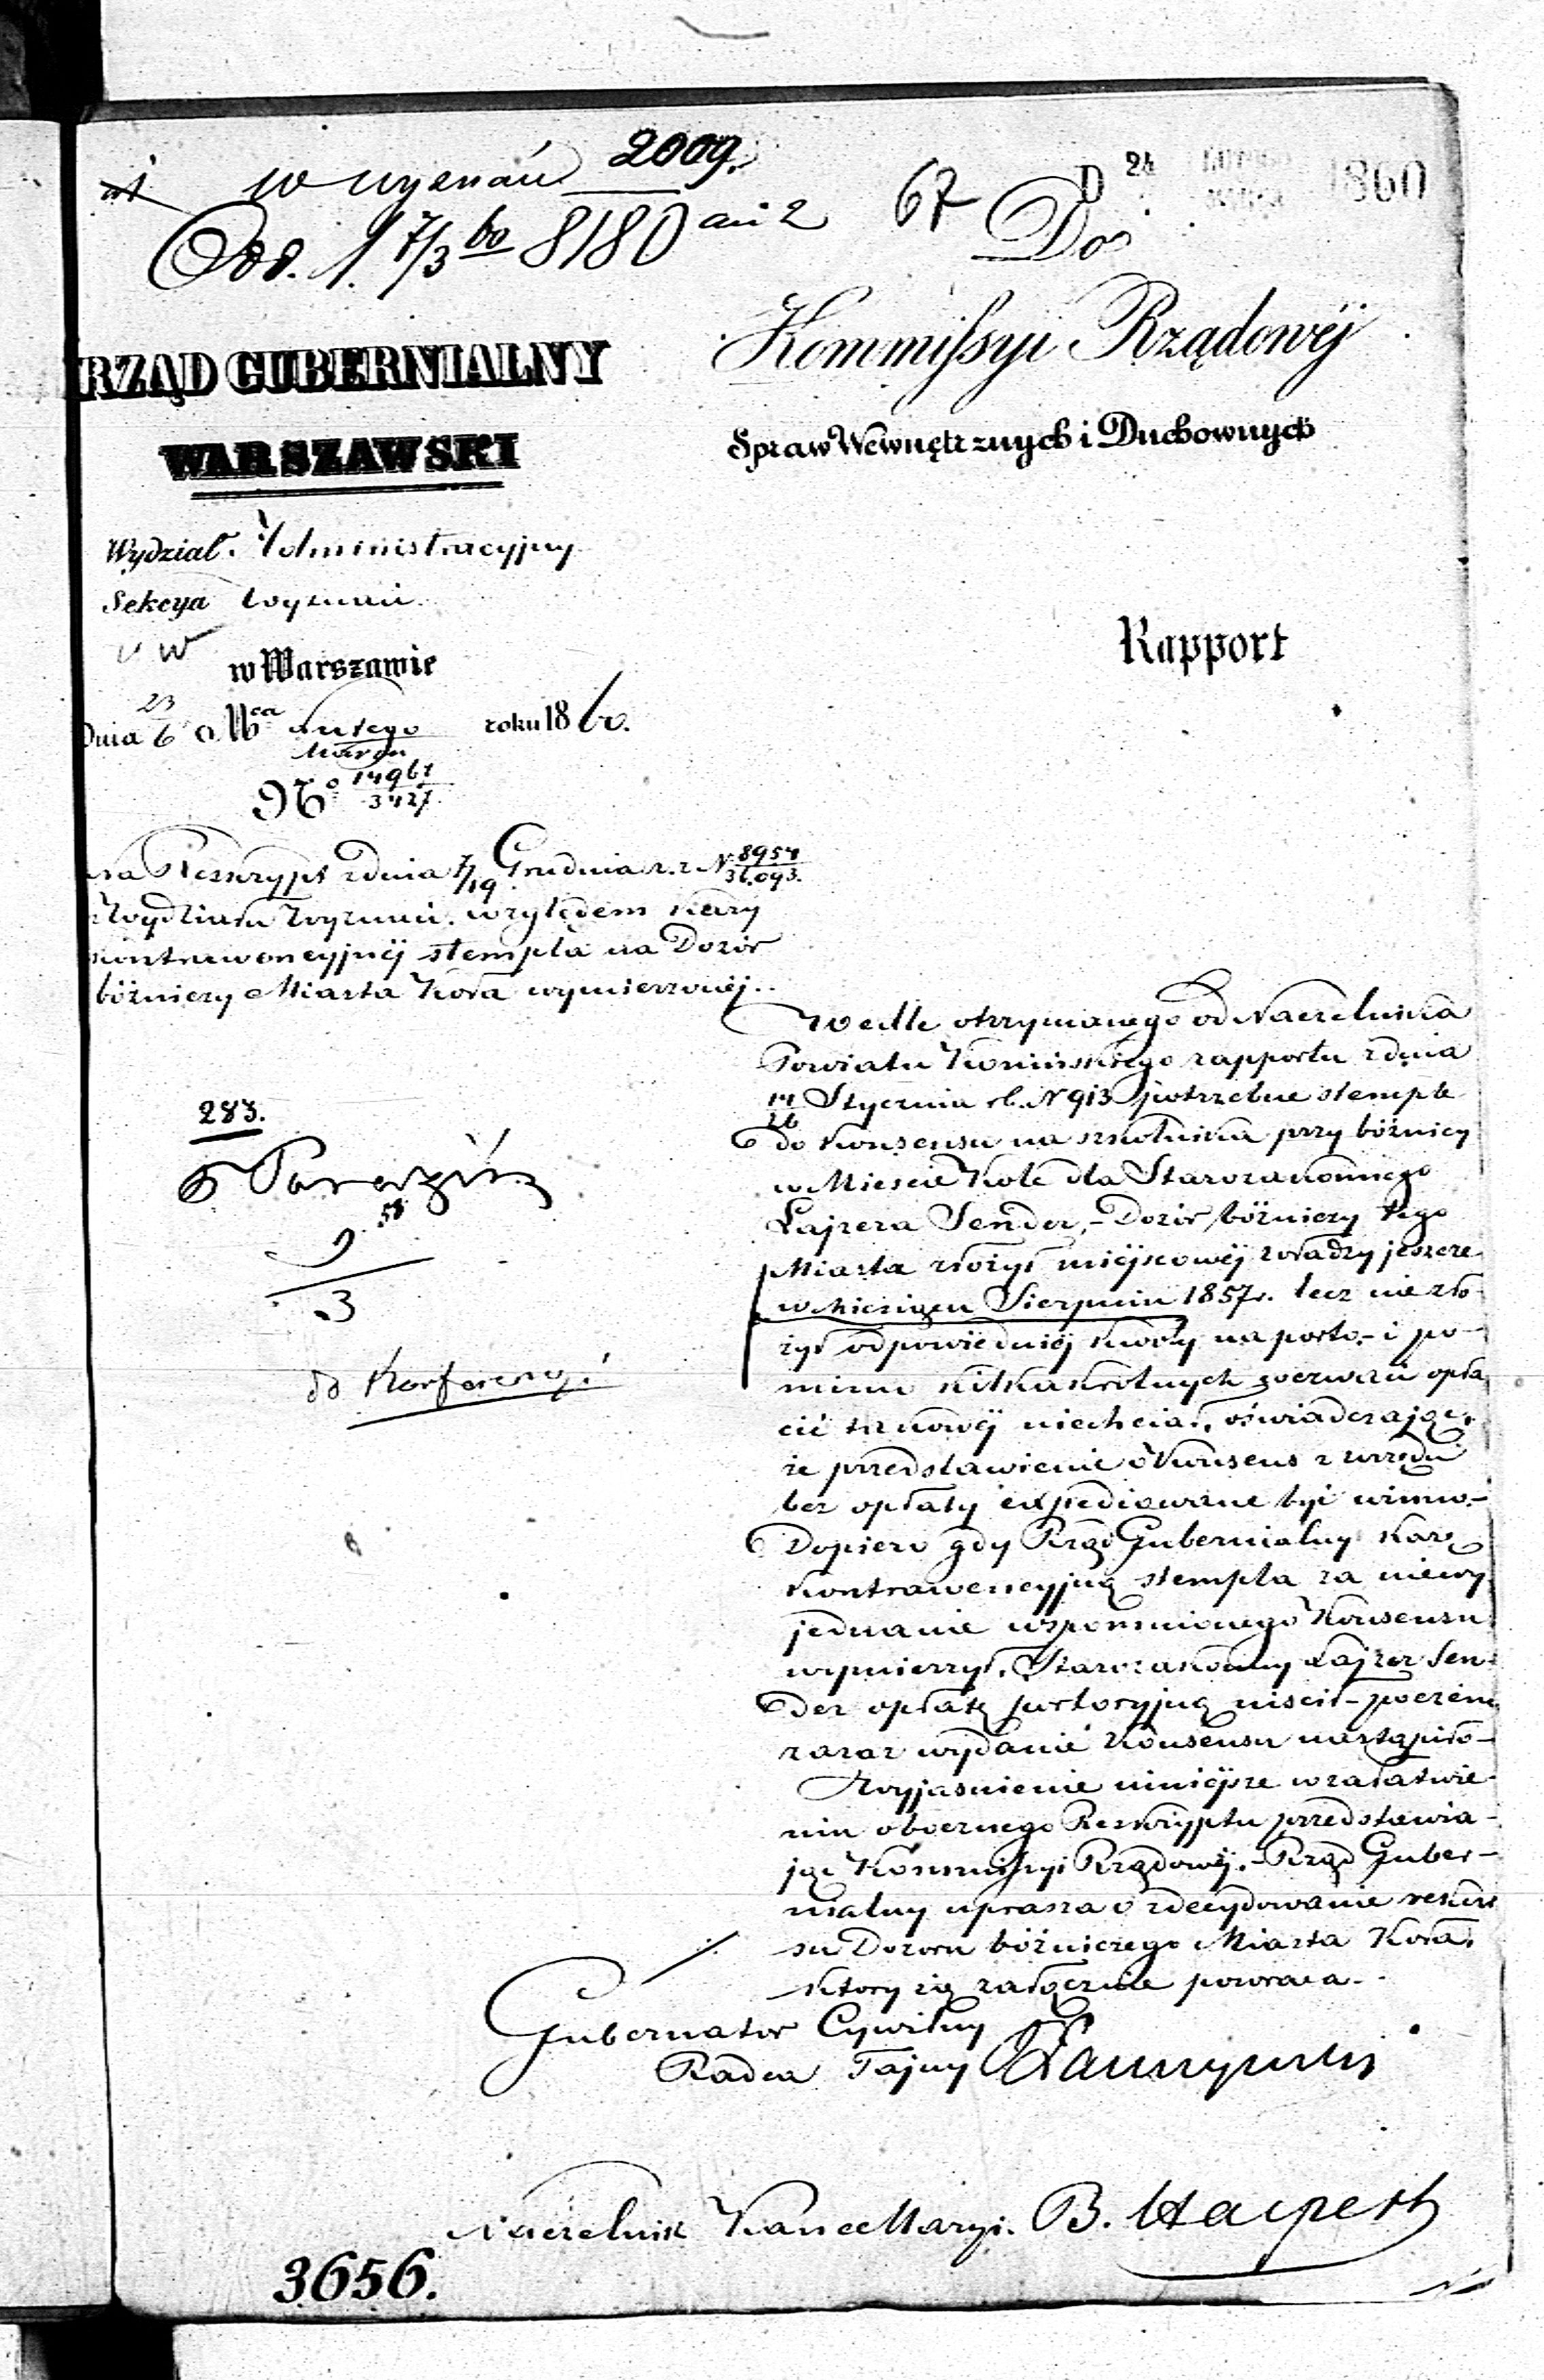 w wyznań 2009.
Odd. 1. 7/3 60 8180 ai 2
67
D 24 LUTEGO MARCA 1860
Do
Kommissyi Rządowéj
Spraw Wewnętrznych i Duchownych
RZĄD GUBERNIALNY
WARSZAWSKI
Wydział Administracyjny
Sekcya Wyznań.
w Warszawie
Dnia 23/6 Mca Lutego/Marca roku 1860.
No 14961/3427
Rapport
na Reskrypt z dnia 7/19 Grudnia r. z. N 8954/36,093.
z Wydziału Wyznań. względem kary
kontrawencyjnéj stempla na Dozór
bóżniczy Miasta Koła wymierzonéj.
283.
9
3
do Konferencyi
Wedle otrzymanego od Naczelnika
Powiatu Konińskiego rapportu z dnia
14/26 Stycznia rb. N 913 potrzebne stemple
do Konsensu na szkolnika przy bóżnicy
w Mieście Kole dla Starozakonnego
Lajzera Sender,- Dozór bóżniczy tego
Miasta złożył miéjscowéj władzy jeszcze
w Miesiącu Sierpniu 1857 r. lecz nie zło-
żył odpowiedniéj kwoty na porto.- i po-
mimo kilkakrotnych wezwań opła
cić takowéj niechciał, oświadczając,
że przedstawienie o Konsens z urzędu
bez opłaty expediowane być winno.-
Dopiero gdy Rząd Gubernialny karę
kontrawencyjną stempla za niewy
jednanie wspomnionego Konsensu
wymierzył, Starozakonny Lajzer Sen-
der opłatę portoryjną uiścił - poczém
zaraz wydanie Konsensu nastąpiło -
Wyjaśnienie niniéjsze w załatwie-
niu obocznego Reskryptu przedstawia-
jąc Kommissyi Rządowéj.- Rząd Guber-
nialny uprasza o zdecydowanie rekur
su Dozoru bóżniczego Miasta Koła,
który się załącznie powraca.-
Gubernator Cywilny
Radca Tajny
Naczelnik Kancellaryi. B. Halpert
3656.